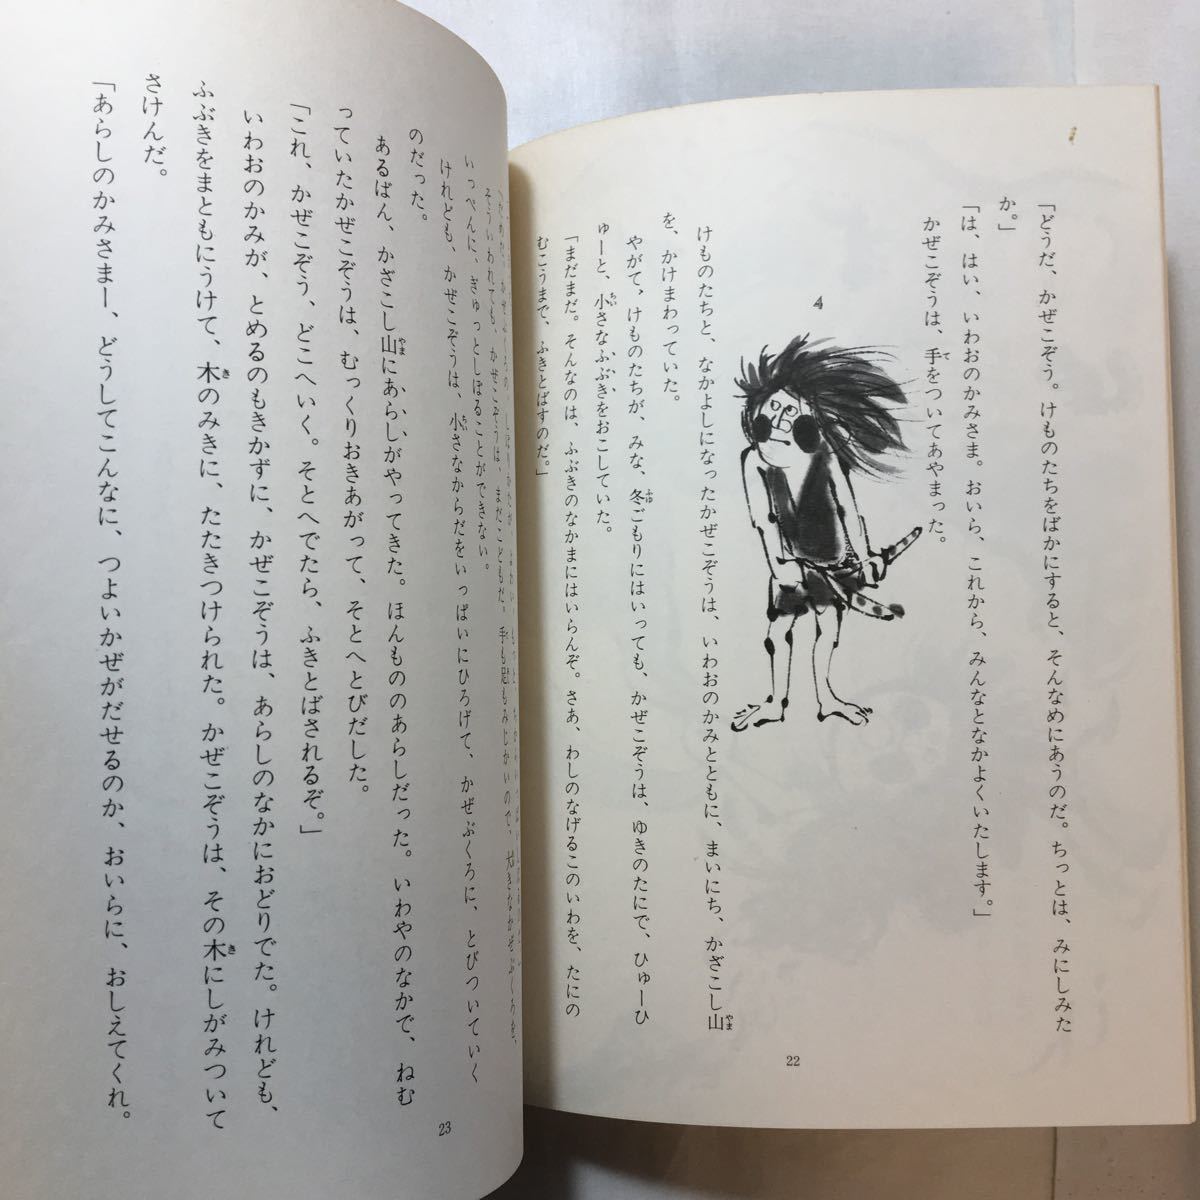 「どうだ、かぜこぞう。けものたちをばかにすると、そんなめにあうのだ。ちっとは、みにしみた
か。」
「は、はい、いわおのかみさま。おいら、これから、みんなとなかよくいたします。」
かぜこぞうは、手をついてあやまった。
4
けものたちと、なかよしになったかぜこぞうは、いわおのかみとともに、まいにち、かざこし山
を、かけまわっていた。
やがて、けものたちが、みな、冬ごもりにはいっても、かぜこぞうは、ゆきのたにで、ひゅーひ
ゅーと、小さなふぶきをおこしていた。
「まだまだ。そんなのは、ふぶきのなかまにはいらんぞ。さあ、わしのなげるこのいわを、たにの
むこうまで、ふきとばすのだ。」
22
そういわれても、かぜこぞうは、まだこどもだ。手も足もみじかいので、大きなかぜぶくろを、
いっぺんに、ぎゅっとしぼることができない。
けれども、かぜこぞうは、小さなからだをいっぱいにひろげて、かぜぶくろに、とびついていく
のだった。
あるばん、かざこし山にあらしがやってきた。ほんもののあらしだった。いわやのなかで、ねむ
っていたかぜこぞうは、むっくりおきあがって、そとへとびだした。
「これ、かぜこぞう、どこへいく。そとへでたら、ふきとばされるぞ。」
いわおのかみが、とめるのもきかずに、かぜこぞうは、あらしのなかにおどりでた。けれども、
ふぶきをまともにうけて、木のみきに、たたきつけられた。かぜこぞうは、その木にしがみついて
さけんだ。
「あらしのかみさまー、どうしてこんなに、つよいかぜがだせるのか、おいらに、おしえてくれ。
23